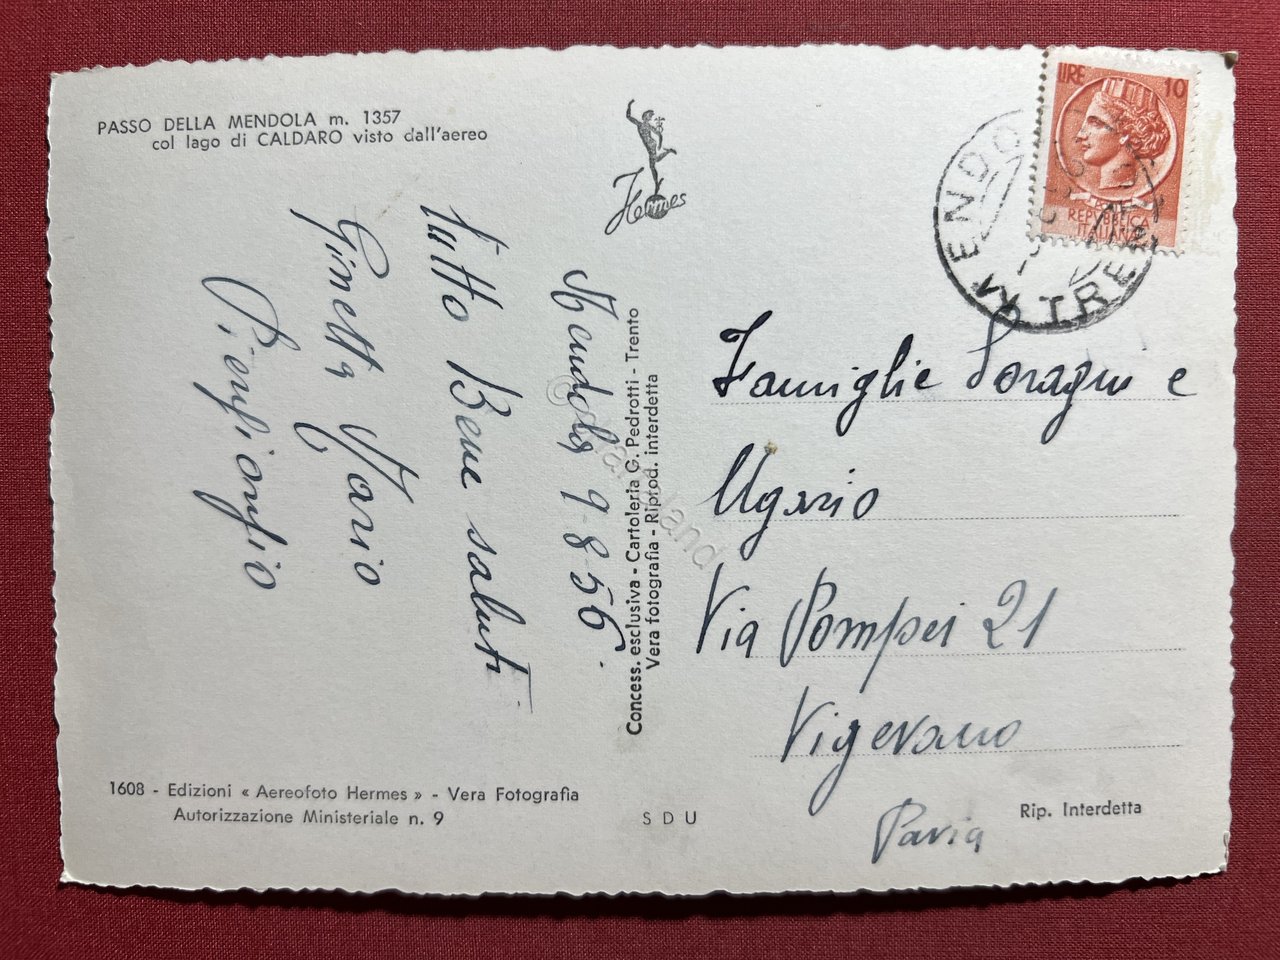 PASSO DELLA MENDOLA m. 1357
col lago di CALDARO visto dall'aereo
Hermes
LIRE 10
REPVBBLICA
ITALIANA
MENDOLA
TRENTO
Mendola 9-8-56.
Tutto Bene saluti
Ginetta Mario
Pierfiorgio
Concess. esclusiva - Cartoleria G. Pedrotti - Trento
Vera fotografia - Riprod. interdetta
Famiglie Soragni e
Ugario
Via Pompei 21
Vigevano
Pavia
1608 - Edizioni « Aereofoto Hermes » - Vera Fotografia
Autorizzazione Ministeriale n. 9
S D U
Rip. Interdetta